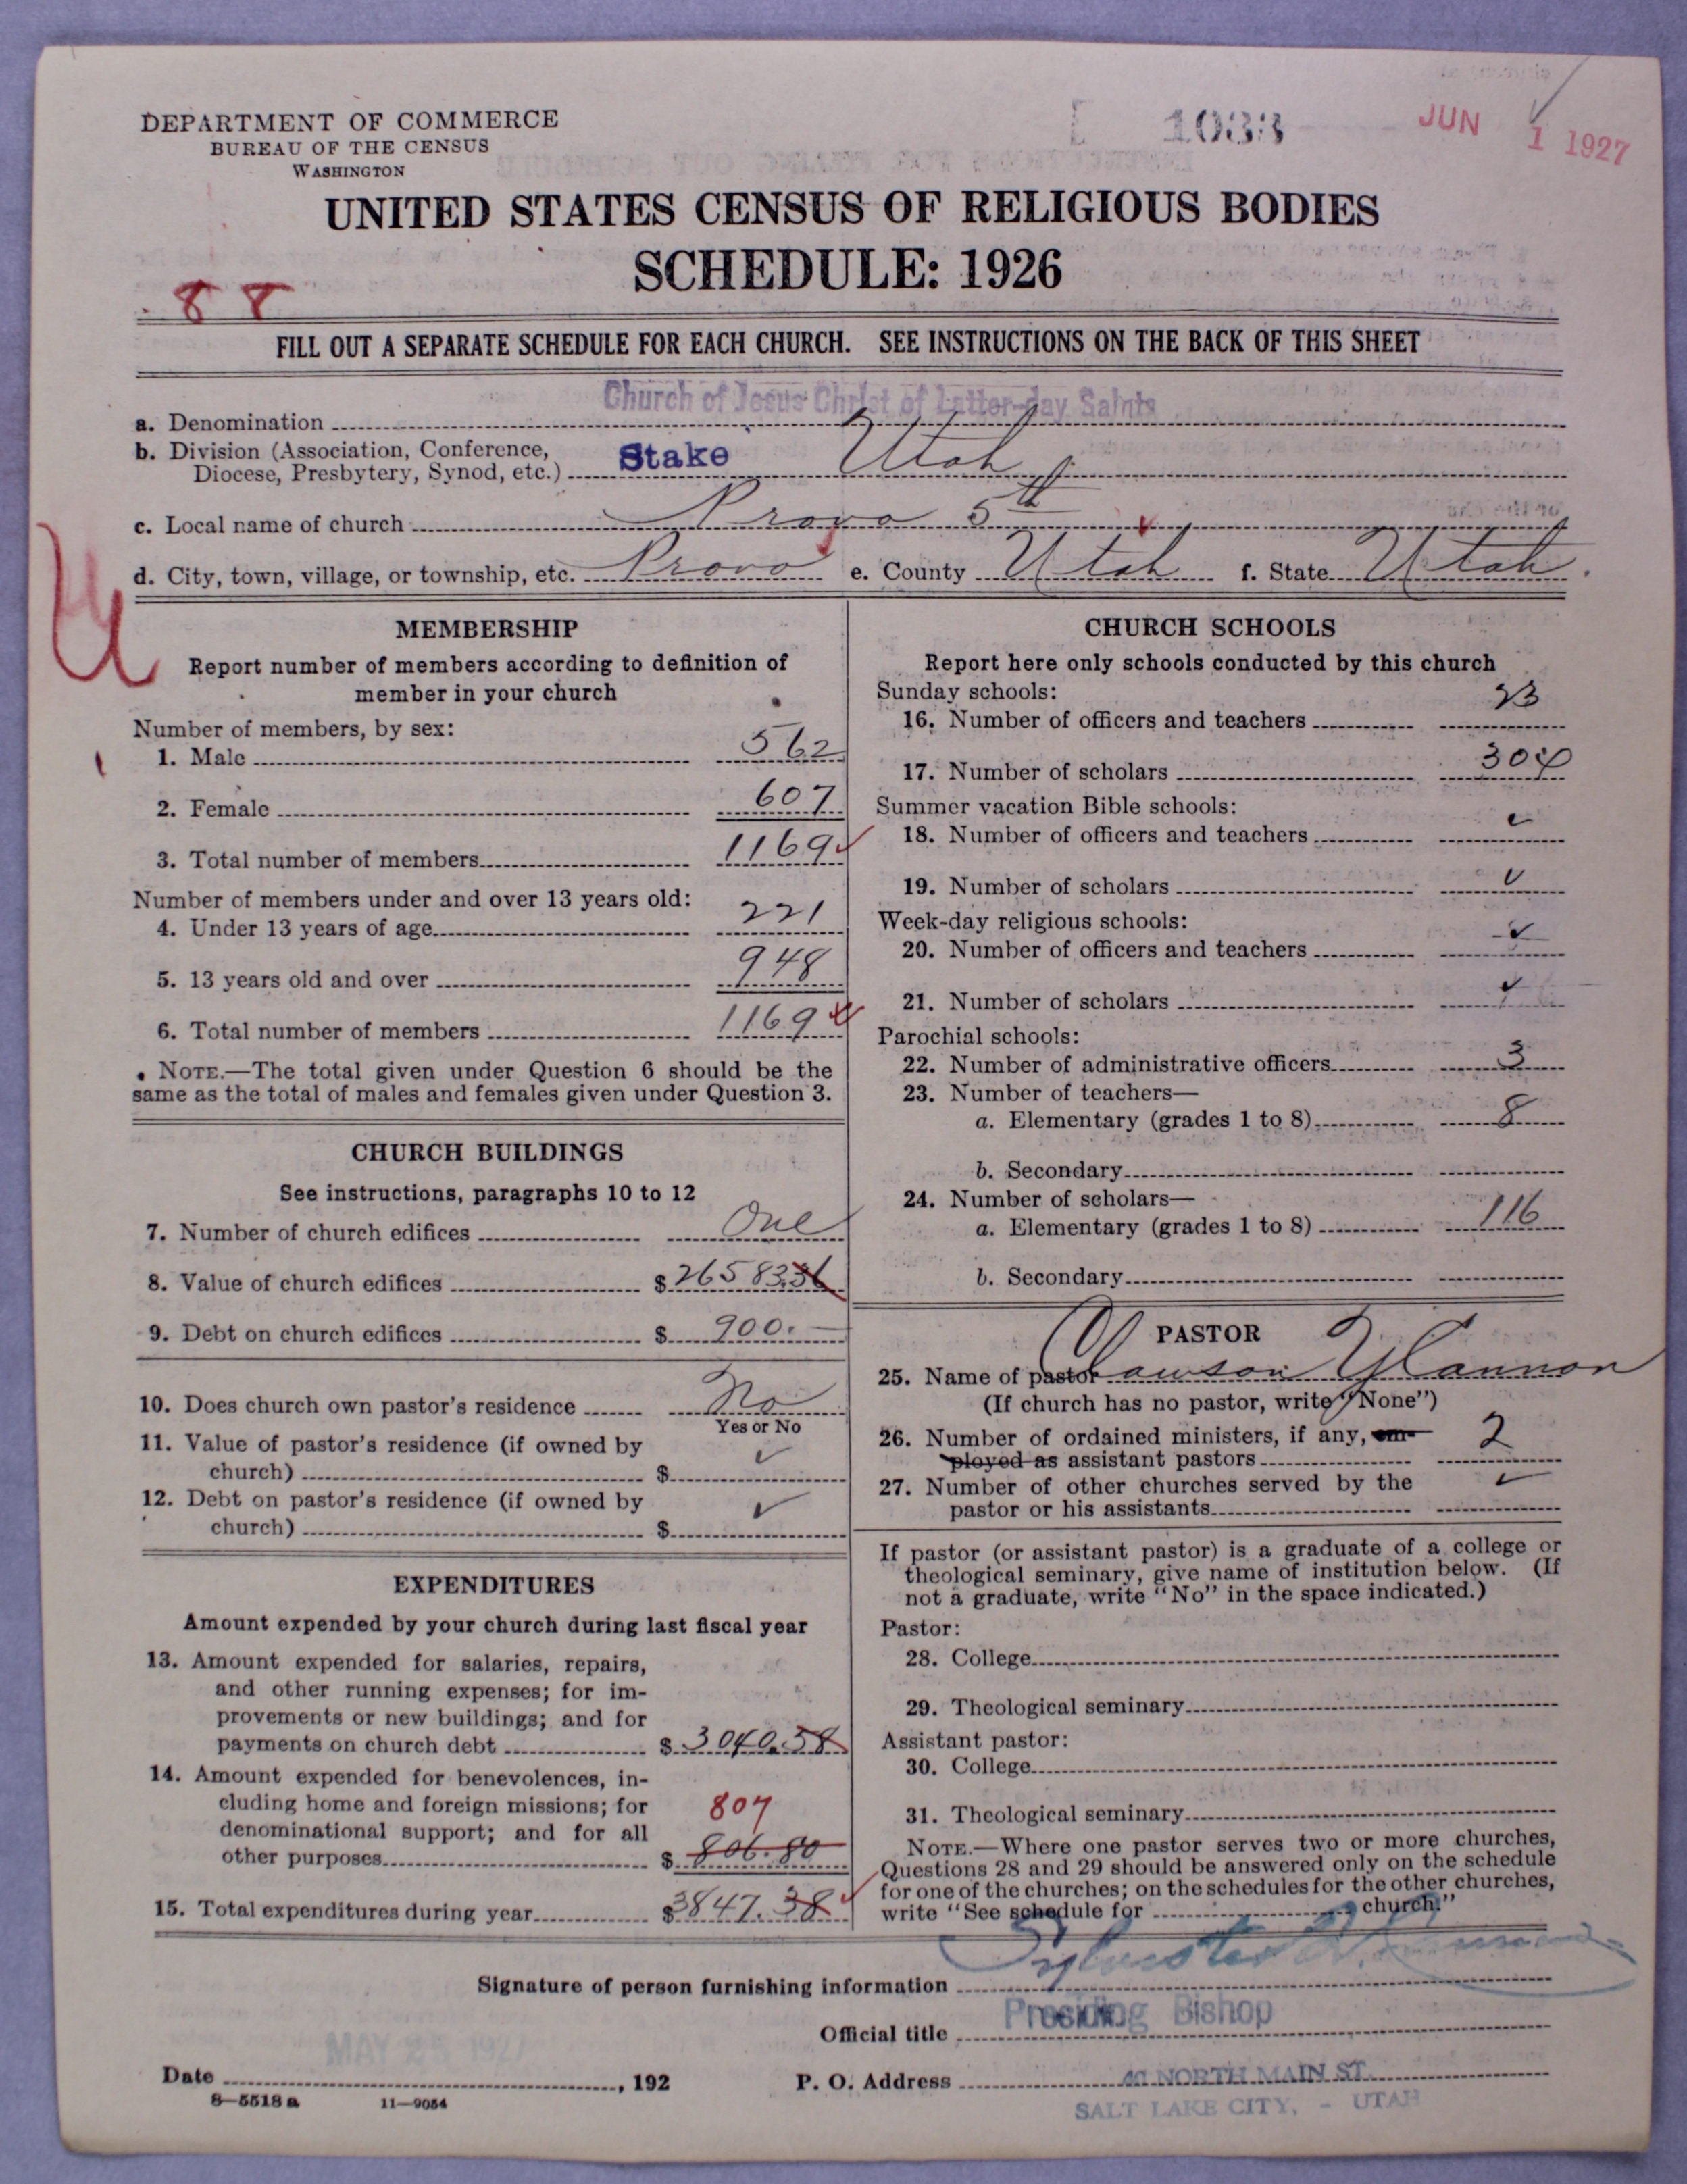 DEPARTMENT OF COMMERCE
BUREAU OF THE CENSUS
WASHINGTON
1033
JUN 1 1927
UNITED STATES CENSUS OF RELIGIOUS BODIES
SCHEDULE: 1926
88
FILL OUT A SEPARATE SCHEDULE FOR EACH CHURCH. SEE INSTRUCTIONS ON THE BACK OF THIS SHEET
a. Denomination Church of Jesus Christ of Latter-day Saints
b. Division (Association, Conference,
Diocese, Presbytery, Synod, etc.) Stake Utah
c. Local name of church Provo 5th
d. City, town, village, or township, etc. Provo e. County Utah f. State Utah
MEMBERSHIP
Report number of members according to definition of
member in your church
Number of members, by sex:
1. Male 562
2. Female 607
3. Total number of members 1169
Number of members under and over 13 years old:
4. Under 13 years of age 221
5. 13 years old and over 948
6. Total number of members 1169
NOTE.—The total given under Question 6 should be the
same as the total of males and females given under Question 3.
CHURCH BUILDINGS
See instructions, paragraphs 10 to 12
7. Number of church edifices One
8. Value of church edifices $26583.36
9. Debt on church edifices $900.—
10. Does church own pastor's residence No
Yes or No
11. Value of pastor's residence (if owned by
church) $ ✓
12. Debt on pastor's residence (if owned by
church) $ ✓
EXPENDITURES
Amount expended by your church during last fiscal year
13. Amount expended for salaries, repairs,
and other running expenses; for im-
provements or new buildings; and for
payments on church debt $3040.58
14. Amount expended for benevolences, in-
cluding home and foreign missions; for 807
denominational support; and for all
other purposes $806.80
15. Total expenditures during year $3847.38
CHURCH SCHOOLS
Report here only schools conducted by this church
Sunday schools:
16. Number of officers and teachers 23
17. Number of scholars 304
Summer vacation Bible schools:
18. Number of officers and teachers ✓
19. Number of scholars ✓
Week-day religious schools:
20. Number of officers and teachers ✓
21. Number of scholars ✓
Parochial schools:
22. Number of administrative officers 3
23. Number of teachers—
a. Elementary (grades 1 to 8) 8
b. Secondary
24. Number of scholars—
a. Elementary (grades 1 to 8) 116
b. Secondary
PASTOR
25. Name of pastor Clawson Y Cannon
(If church has no pastor, write "None")
26. Number of ordained ministers, if any, em-
ployed as assistant pastors 2
27. Number of other churches served by the
pastor or his assistants ✓
If pastor (or assistant pastor) is a graduate of a college or
theological seminary, give name of institution below. (If
not a graduate, write "No" in the space indicated.)
Pastor:
28. College
29. Theological seminary
Assistant pastor:
30. College
31. Theological seminary
NOTE.—Where one pastor serves two or more churches,
Questions 28 and 29 should be answered only on the schedule
for one of the churches; on the schedules for the other churches,
write "See schedule for church."
Signature of person furnishing information Sylvester Q. Cannon
Official title Presiding Bishop
MAY 25 1927
Date , 192 P. O. Address 40 NORTH MAIN ST.
SALT LAKE CITY, - UTAH
8—5518 a 11—9054